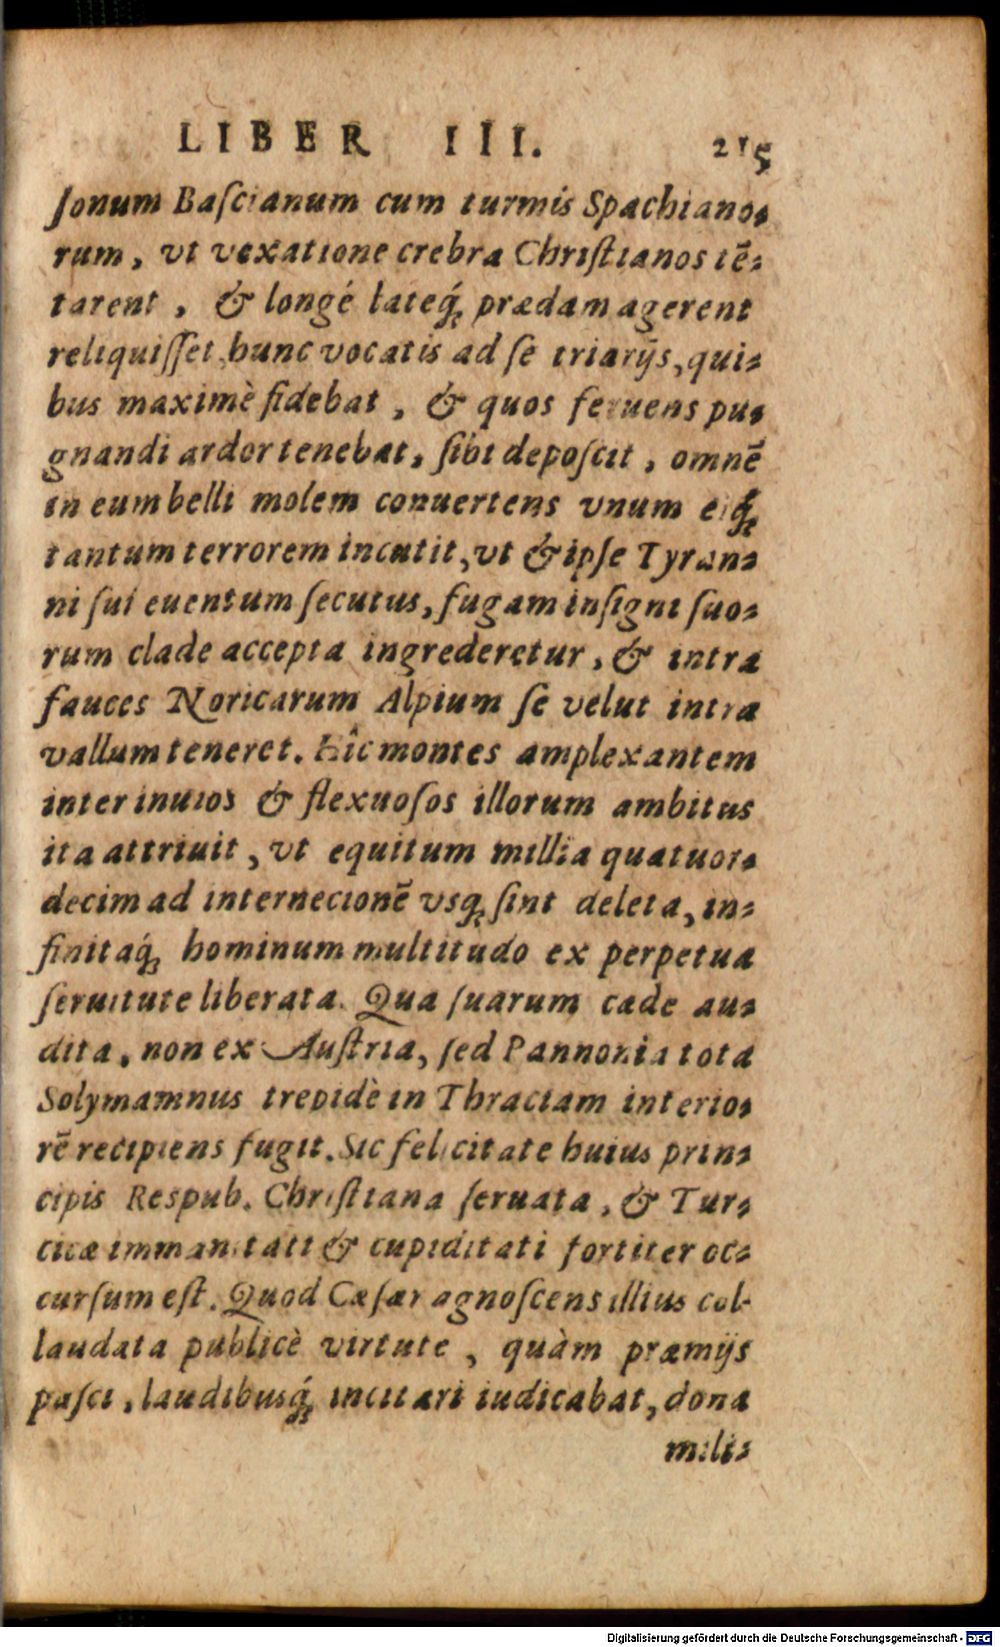 LIBER III. 215
ſonum Baſcianum cum turmis Spachiano⸗
rum, vt vexatione crebra Chriſtianos tē⸗
tarent, & longé lateq́; prædam agerent
reliquiſſet, hunc vocatis ad ſe triarijs, qui⸗
bus maximè fidebat, & quos feruens pu⸗
gnandi ardor tenebat, ſibi depoſcit, omnē
in eum belli molem conuertens vnum eiq́;
tantum terrorem incutit, vt & ipſe Tyran⸗
ni ſui euentum ſecutus, fugam inſigni ſuo⸗
rum clade accepta ingrederetur, & intra
fauces Noricarum Alpium ſe velut intra
vallum teneret. Hîc montes amplexantem
inter inuios & flexuoſos illorum ambitus
ita attriuit, vt equitum millia quatuor⸗
decim ad internecionē vsq; ſint deleta, in⸗
finitaq́; hominum multitudo ex perpetua
ſeruitute liberata. Qua ſuarum cæde au⸗
dita, non ex Auſtria, ſed Pannonia tota
Solymamnus trepidè in Thraciam interio⸗
rē recipiens fugit. Sic felicitate huius prin⸗
cipis Respub. Chriſtiana ſeruata, & Tur⸗
cicæ immanitati & cupiditati fortiter oc⸗
curſum eſt. Quod Cæſar agnoſcens illius col-
laudata publicè virtute, quàm præmijs
paſci, laudibusq́; incitari iudicabat, dona
mili⸗
Digitalisierung gefördert durch die Deutsche Forschungsgemeinschaft - DFG